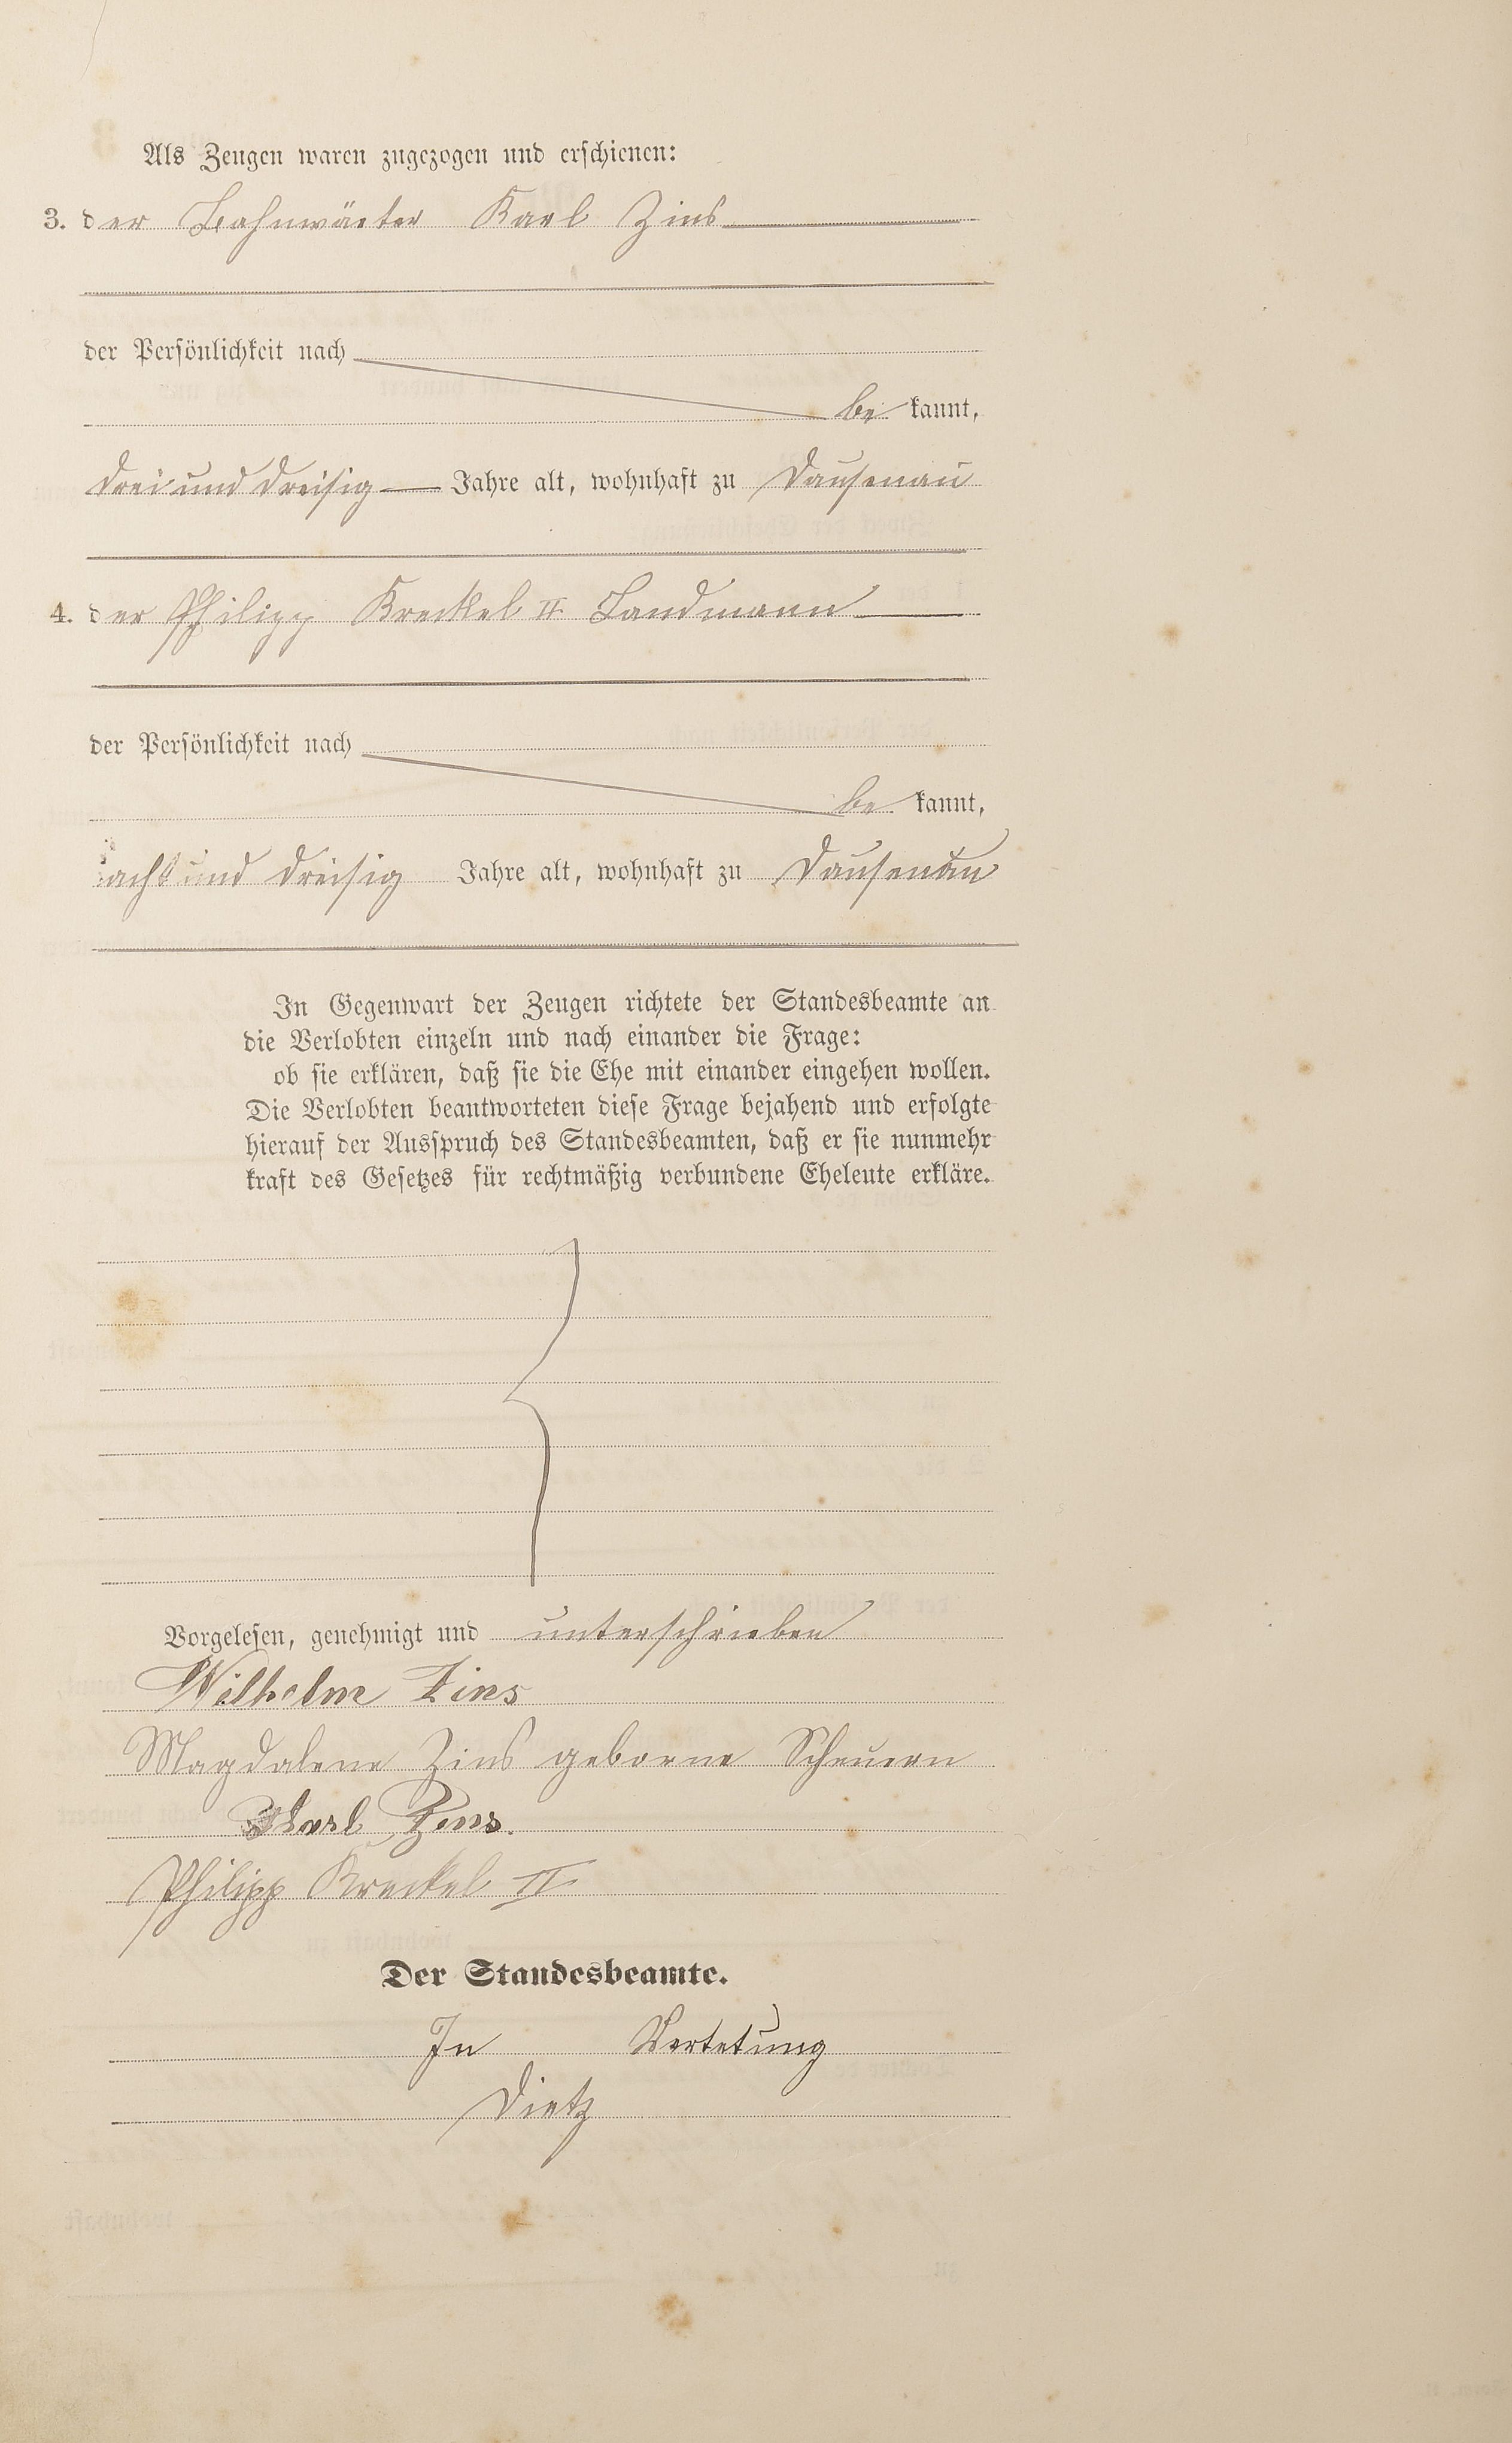 Als Zeugen waren zugezogen und erschienen:
3. der Bahnwärter Karl Zins
der Persönlichkeit nach
be kannt,
drei und dreisig Jahre alt, wohnhaft zu Dausenau
4. der Philipp Kreckel II Landmann
der Persönlichkeit nach
be kannt,
acht und dreisig Jahre alt, wohnhaft zu Dausenau
In Gegenwart der Zeugen richtete der Standesbeamte an
die Verlobten einzeln und nach einander die Frage:
ob sie erklären, daß sie die Ehe mit einander eingehen wollen.
Die Verlobten beantworteten diese Frage bejahend und erfolgte
hierauf der Ausspruch des Standesbeamten, daß er sie nunmehr
kraft des Gesetzes für rechtmäßig verbundene Eheleute erkläre.
Vorgelesen, genehmigt und unterschrieben
Wilhelm Zins
Magdalene Zins geborne Scheuern
Karl Zins.
Philipp Kreckel II
Der Standesbeamte.
In Vertetung
Dietz